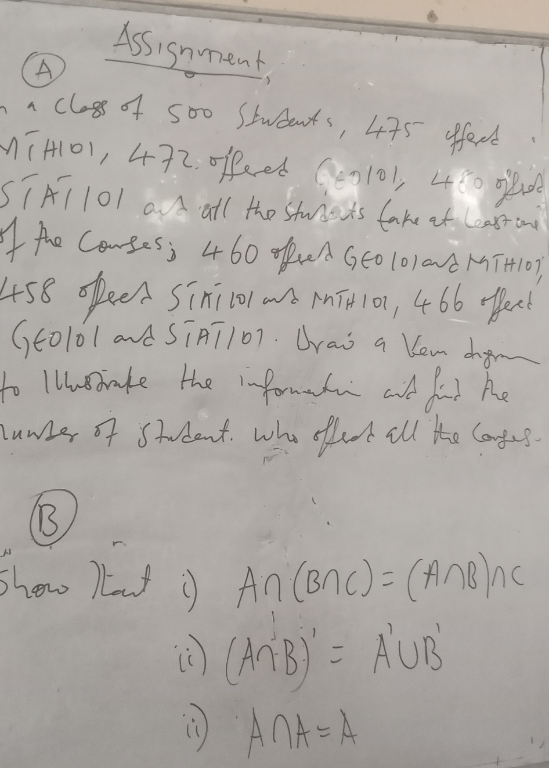 Assignment
A
a class of 500 students, 475 offered
MTH101, 472 offered GEO101, 480 offered
STAT101 and all the students take at least one
of the courses; 460 offered GEO101 and MTH101,
458 offered STAT101 and MTH101, 466 offered
GEO101 and STAT101. Draw a Venn digram
to Illustrate the information and find the
number of student. who offered all the Courses.
B
Show that i) A∩(B∩C) = (A∩B)∩C
ii) (A∩B)' = A'∪B'
ii) A∩A = A